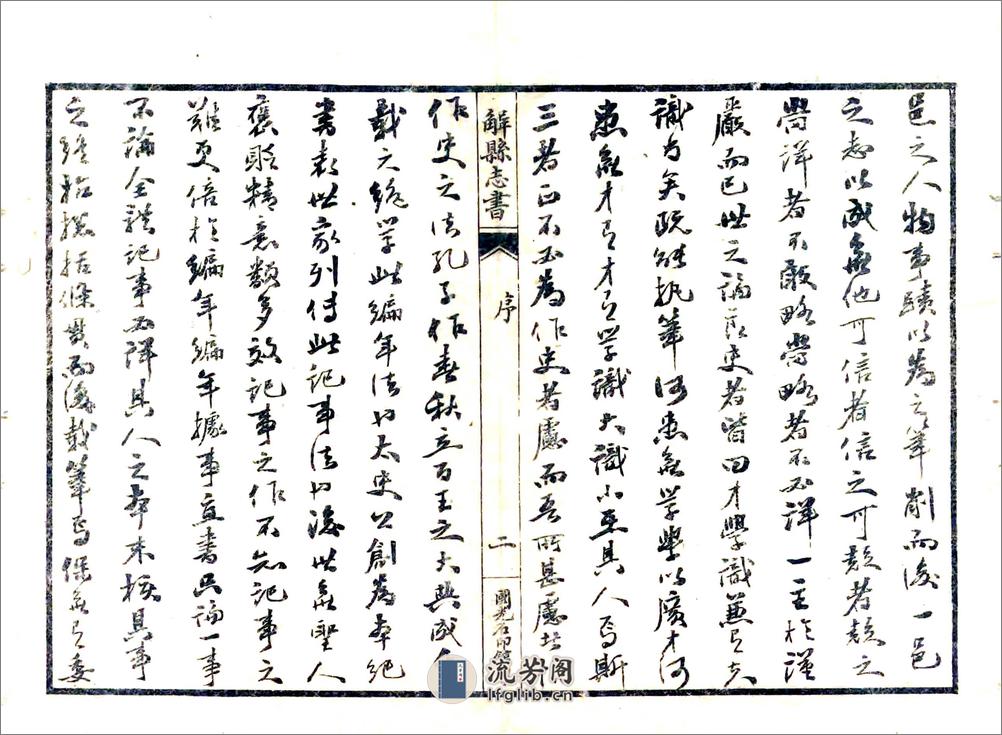 邑之人物事蹟以為之筆削而後一邑
之志以成無他可信者信之可疑者疑之
當詳者不敢略當略者不必詳一主於謹
嚴而已世之論作史者皆曰才學識兼之
識為先既能執筆何患無學學以廣才何
患無才有才有學識大識小要其人焉斯
三者正不必為作史者慮而吾所甚慮者
解縣志書
序
二
國光石印館
作史之法孔子作春秋立百王之大典成
載之絕學此編年法也太史公創為本紀
書表世家列傳此記事法也後世無聖人
褒貶精意類多效記事之作不知記事之
難更倍於編年編年據事直書只論一事
不論全體記事必詳其人之本末核其事
之終始概括條貫而後載筆焉保無有委
流芳阁
lfglib.cn